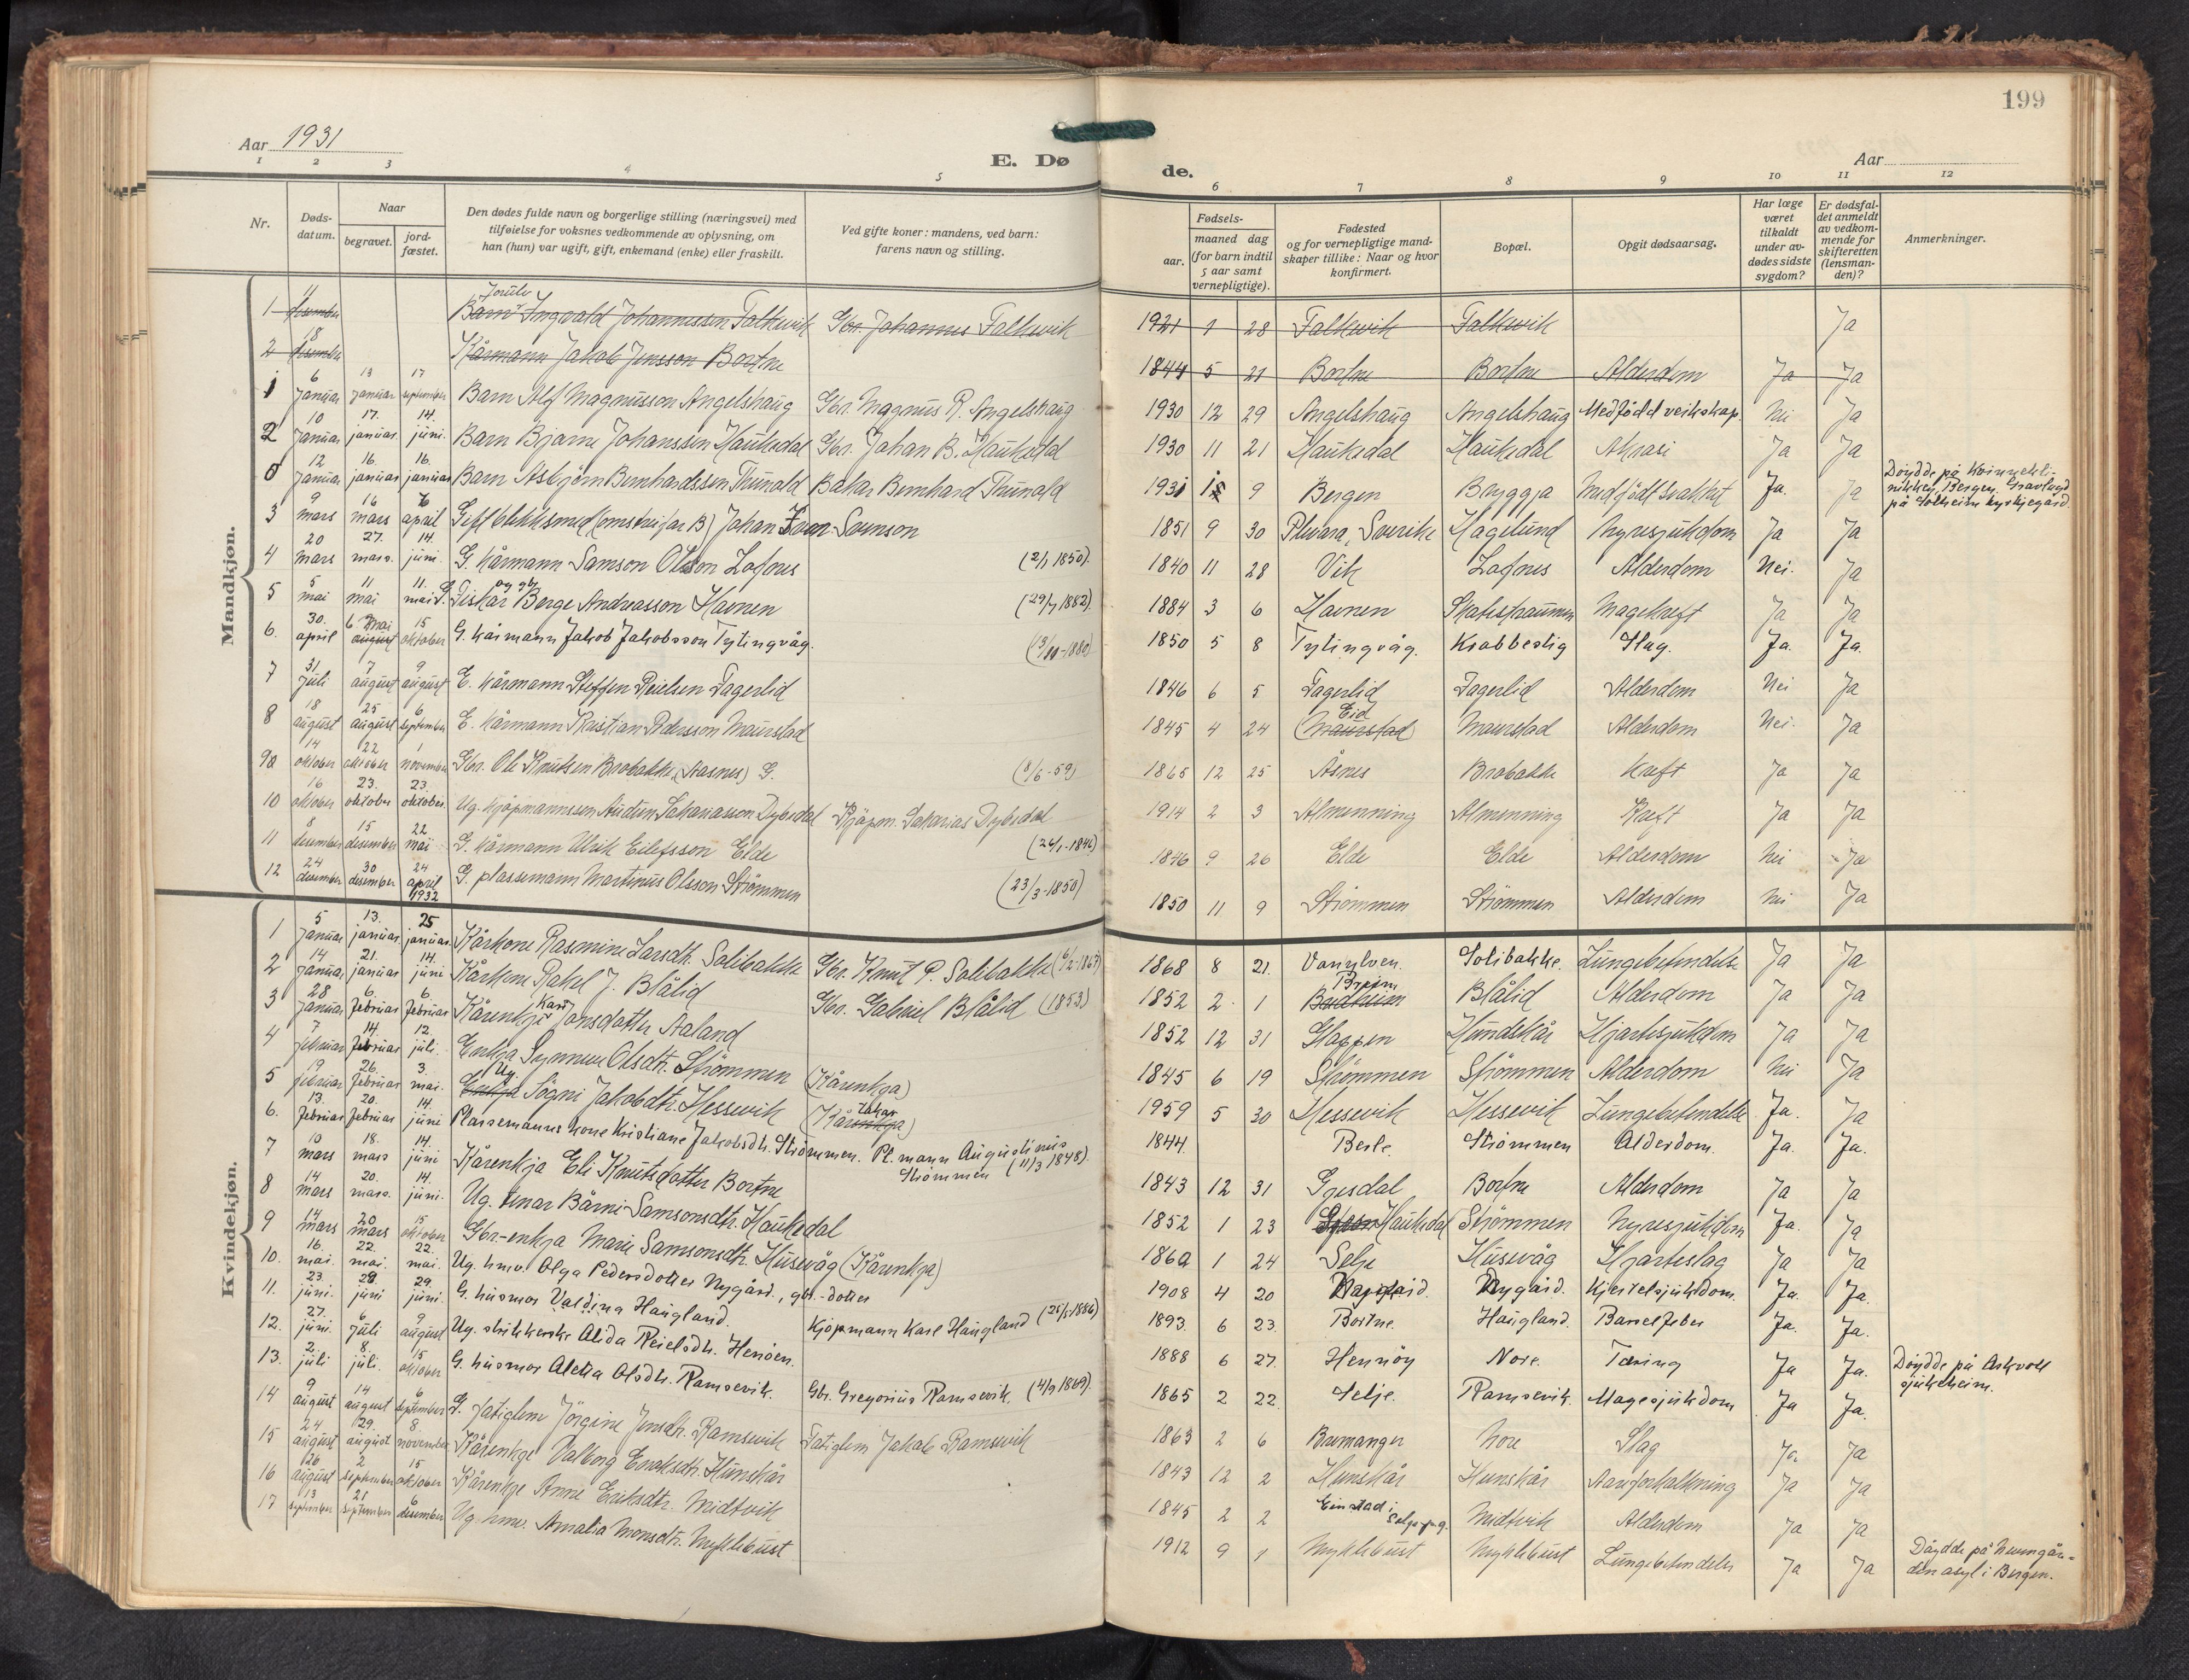 199
Aar 1931
E. Dø de.
Aar
1 2 3 4 5 6 7 8 9 10 11 12
Nr.
Døds-
datum.
Naar
begravet.
jord-
fæstet.
Den dødes fulde navn og borgerlige stilling (næringsvei) med
tilføielse for voksnes vedkommende av oplysning, om
han (hun) var ugift, gift, enkemand (enke) eller fraskilt.
Ved gifte koner: mandens, ved barn:
farens navn og stilling.
Fødsels-
aar.
maaned dag
(for barn indtil
5 aar samt
vernepligtige).
Fødested
og for vernepligtige mand-
skaper tillike: Naar og hvor
konfirmert.
Bopæl.
Opgit dødsaarsag.
Har læge
været
tilkaldt
under av-
dødes sidste
sygdom?
Er dødsfal-
det anmeldt
av vedkom-
mende for
skifteretten
(lensman-
den)?
Anmerkninger.
Mandkjøn.
1 11 desember Barn Ingvald Johannessen Falkevik Gbr. Johannes Falkevik 1921 1 28 Falkevik Falkevik Ja
2 18 desember Kårmann Jakob Jensson Bortne 1844 5 21 Bortne Bortne Alderdom Ja Ja
1 6 januar 13 januar 17 september Barn Alf Magnusson Angelshaug Gbr. Magnus R. Angelshaug 1930 12 29 Angelshaug Angelshaug Medfødd veikskap. Nei Ja
2 10 januar 17. januar 14. juni. Barn Bjarne Johanssen Haukedal Gbr. Johan B. Haukedal 1930 11 21 Haukedal Haukedal Ja Ja
0 12 januar 16. januar 16. januar Barn Asbjørn Bernhardssen Thunold Bakar Bernhard Thunold 1931 1 9 Bergen Bryggja Medfødt svakhet Ja. Ja Døydde på Kvinneklinikken, Bergen. Gravlagd på Solheim kyrkjegard.
3 9 mars 16 mars 6 april Gift blikksmed (omstreifar B) Johan Iver Svenson 1851 9 30 Sverike Hagelund Nyresjukdom Ja Ja
4 20 mars 27. mars. 14. juni. G. Kårmann Samson Olsson Lofnes (2/1 1850). 1840 11 28 Vik Lofnes Alderdom Nei. Ja
5 5 mai 11 mai 11. mai G. Fiskar og gbr. Berge Andreasson Havnen (29/7 1882). 1884 3 6 Havnen Skatestraumen Magekreft Ja Ja
6. 30. april 6 mai august 15 oktober G. kårmann Jakob Jakobsson Tytingvåg. 1850 5 8 Tytingvåg. Krabbestig Slag. Ja. Ja.
7 31 juli 7 august 9 august E. kårmann Steffen Reielsen Fagerlid 1846 6 5 Fagerlid Fagerlid Alderdom Nei Ja
8 18 august 25 august 6 september E. Kårmann Kristian Pedersson Maurstad 1845 4 24 Eid (Maurstad) Maurstad Alderdom Nei. Ja
9a 14 oktober 22 oktober 1 november Gbr. Ole Knutsen Brobakke, (Aasnes) G. (8/6-59) 1865 12 25 Åsnes Brobakke Kreft Ja Ja
10 16 oktober 23. oktober 23. oktober. Ug. kjøpmannssen Audun Sakariasson Dybedal Kjøpm. Sakarias Dybedal 1914 2 3 Almenning Almenning Kreft Ja Ja
11 8 desember 15 desember 22 mai G. kårmann Ulrik Eilefsson Elde (26/1-1846) 1846 9 26 Elde Elde Alderdom Nei Ja
12 24 desember 30 desember 24 april 1932 G. plassemann Martinus Olsson Strømmen (23/3-1850) 1850 11 9 Strømmen Strømmen Alderdom Nei Ja
Kvindekjøn.
1 5 januar 13. januar. 25 januar. Kårkone Rasmine Larsdtr. Solibakke Gbr. Knut P. Solibakke 1868 8 21. Vanylven. Solibakke. Lungebetendelse Ja Ja
2 14 januar 21. januar 14. juni Kårkone Rakel J. Blålid Gbr. Gabriel Blålid (1853) 1852 2. 1 Breim Blålid Alderdom Ja Ja
3 28 januar 6. februar 6. februar Kårenkje Kari Jonsdotter Aaland 1852 12 31 Gloppen Hundskår Hjartesjukdom Ja Ja
4 7 februar 14. februar 12. juli. Enkja Synneve Olsdtr. Strømmen (Kårenkja) 1845 6 19 Strømmen Strømmen Alderdom Nei Ja
5 19 februar 26. februar 3. mai. Ug. Enkja Søgni Jakobdtr. Hessevik 1959 5 30 Hessevik Hessevik Lungebetendelse Ja. Ja
6. 13. februar 20. februar 14. juni Plassemanns kone Kristiane Jakobsdtr. Strømmen. Pl. mann Augustinus Strømmen (11/3 1848). 1844. Berle. Strømmen Alderdom. Ja. Ja.
7 10 mars 18. mars 14. juni Kårenkja Eli Knutsdotter Bortne 1843 12 31 Gjesdal Bortne Alderdom Ja Ja
8 14 mars 20. mars. 14. juni. Ug. Barni Samsonsdtr. Haukedal 1852 1 23 Haukedal Strømmen Nyresjukdom Ja. Ja
9 14 mars 20 mars 15 oktober Gbr-enkja Marie Samsonsdtr. Husevåg (Kårenkja) 1862 1 24 Selje Husevåg Hjarteslag Ja Ja
10. 16. mai. 22. mai. 22. mai. Ug. hmv. Olga Pedersdotter Nygård., gbr.-dotter 1908 4 20 Nygård. Kjertelsjukdom. Ja. Ja.
11. 23. juni. 29. juni 29. juni. G. husmor Valdina Haugland. Kjøpmann Karl Haugland 1893. 6 23. Bortne. Haugland. Barselfeber Ja. Ja.
12. 27. juni. 6. juli 9 august Ug. strikkerske Alida Reielsdtr. Henøen. 1888 6 27. Hennøy Nore. Tæring Ja Ja. Døydde på Askvoll sjukeheim.
13. 2. juli 8. juli. 15 oktober G. husmor Aletta Olsdtr. Ramsevik. Gbr. Gregorius Ramsevik. (4/9 1869). 1865 2 22. Selje. Ramsevik. Magesjukdom Ja Ja.
14 9 august 14 august 6 september G. fatiglem Jørgine Jensdtr. Ramsevik Fatiglem Jakob Ramsevik 1863 2 6 Bremanger Nore Slag Ja Ja
15 24 august 29. august 8. november Kårenkje Valborg Enoksdtr. Hunskår 1843 12 2 Hunskår Hunskår Aareforkalkning Ja Ja
16 26 august 2 september 15 oktober Kårenkje Anne Eriksdtr. Midtvik 1845 2 2 Midtvik Alderdom Ja Ja
17 13 september 21 september 6 desember Ug. hmv. Amalia Monsdtr. Myklebust 1912 9 1 Myklebust Myklebust Lungebetendelse Ja Ja Døydde på Neevengården asyl i Bergen.